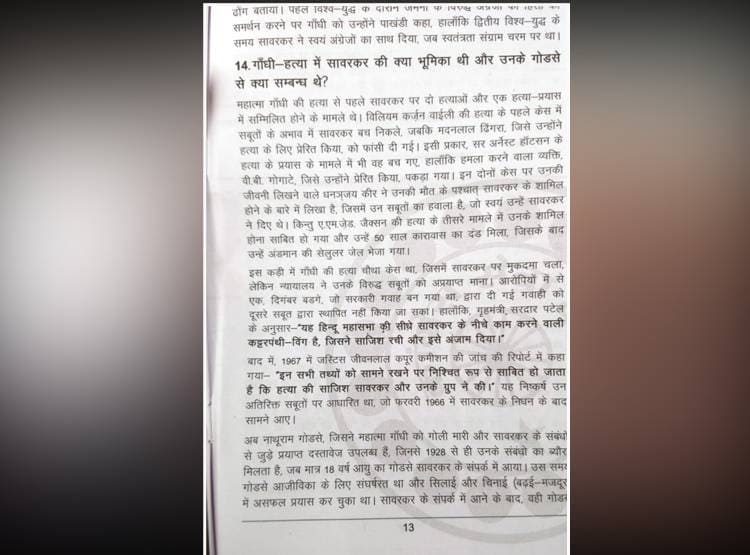 ढोंग बताया। पहले विश्व–युद्ध के दौरान जर्मनी के विरुद्ध अंग्रेजों
समर्थन करने पर गाँधी को उन्होंने पाखंडी कहा, हालाँकि द्वितीय विश्व–युद्ध के
समय सावरकर ने स्वयं अंग्रेजों का साथ दिया, जब स्वतंत्रता संग्राम चरम पर था।
14. गाँधी–हत्या में सावरकर की क्या भूमिका थी और उनके गोडसे
से क्या सम्बन्ध थे?
महात्मा गाँधी की हत्या से पहले सावरकर पर दो हत्याओं और एक हत्या–प्रयास
में सम्मिलित होने के मामले थे। विलियम कर्ज़न वाईली की हत्या के पहले केस में
सबूतों के अभाव में सावरकर बच निकले, जबकि मदनलाल ढिंगरा, जिसे उन्होंने
हत्या के लिए प्रेरित किया, को फांसी दी गई। इसी प्रकार, सर अर्नेस्ट हॉटसन के
हत्या के प्रयास के मामले में भी वह बच गए, हालाँकि हमला करने वाला व्यक्ति,
वी.बी. गोगाटे, जिसे उन्होंने प्रेरित किया, पकड़ा गया। इन दोनों केस पर उनकी
जीवनी लिखने वाले धनञ्जय कीर ने उनकी मौत के पश्चात् सावरकर के शामिल
होने के बारे में लिखा है, जिसमें उन सबूतों का हवाला है, जो स्वयं उन्हें सावरकर
ने दिए थे। किन्तु ए.एम.जे़ड. जैक्सन की हत्या के तीसरे मामले में उनके शामिल
होना साबित हो गया और उन्हें 50 साल कारावास का दंड मिला, जिसके बाद
उन्हें अंडमान की सेलुलर जेल भेजा गया।
इस कड़ी में गाँधी की हत्या चौथा केस था, जिसमें सावरकर पर मुकदमा चला,
लेकिन न्यायालय ने उनके विरुद्ध सबूतों को अप्रयाप्त माना। आरोपियों में से
एक, दिगंबर बडगे, जो सरकारी गवाह बन गया था, द्वारा दी गई गवाही को
दूसरे सबूत द्वारा स्थापित नहीं किया जा सका। हालाँकि, गृहमंत्री, सरदार पटेल
के अनुसार–"यह हिन्दू महासभा की सीधे सावरकर के नीचे काम करने वाली
कट्टरपंथी–विंग है, जिसने साजिश रची और इसे अंजाम दिया।"
बाद में, 1967 में जस्टिस जीवनलाल कपूर कमीशन की जांच की रिपोर्ट में कहा
गया– "इन सभी तथ्यों को सामने रखने पर निश्चित रूप से साबित हो जाता
है कि हत्या की साजिश सावरकर और उनके ग्रुप ने की।" यह निष्कर्ष उन
अतिरिक्त सबूतों पर आधारित था, जो फरवरी 1966 में सावरकर के निधन के बाद
सामने आए।
अब नाथूराम गोडसे, जिसने महात्मा गाँधी को गोली मारी और सावरकर के संबंधों
से जुड़े प्रयाप्त दस्तावेज उपलब्ध हैं, जिनसे 1928 से ही उनके संबंधो का
मिलता है, जब मात्र 18 वर्ष आयु का गोडसे सावरकर के संपर्क में आया। उस समय
गोडसे आजीविका के लिए संघर्षरत था और सिलाई और चिनाई (बढ़ई–मजदूर
में असफल प्रयास कर चुका था। सावरकर के संपर्क में आने के बाद, वही
13